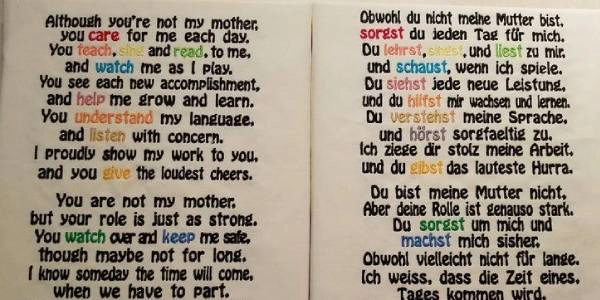 Although you're not my mother,
you care for me each day.
You teach, sing and read, to me,
and watch me as I play.
You see each new accomplishment,
and help me grow and learn.
You understand my language,
and listen with concern.
I proudly show my work to you,
and you give the loudest cheers.
You are not my mother,
but your role is just as strong.
You watch over and keep me safe,
though maybe not for long.
I know someday the time will come,
when we have to part.
Obwohl du nicht meine Mutter bist,
sorgst du jeden Tag für mich.
Du lehrst, singst, und liest zu mir,
und schaust, wenn ich spiele.
Du siehst jede neue Leistung,
und du hilfst mir wachsen und lernen.
Du verstehst meine Sprache,
und hörst sorgfaeltig zu.
Ich ziege dir stolz meine Arbeit,
und du gibst das lauteste Hurra.
Du bist meine Mutter nicht,
Aber deine Rolle ist genauso stark.
Du sorgst um mich und
machst mich sisher,
Obwohl vielleicht nicht für lange.
Ich weiss, dass die Zeit eines,
Tages kommen wird,